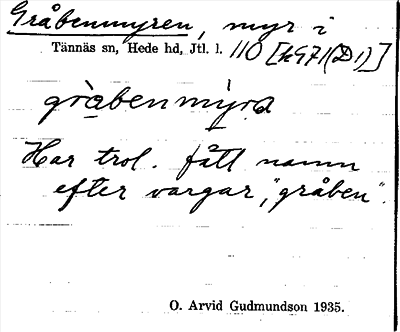 Gråbenmyren, myr i
Tännäs sn, Hede hd, Jtl. l. 110 [k971(D1)]
gràbenmýra
Har trol. fått namn
efter vargar, "gråben".
O. Arvid Gudmundson 1935.